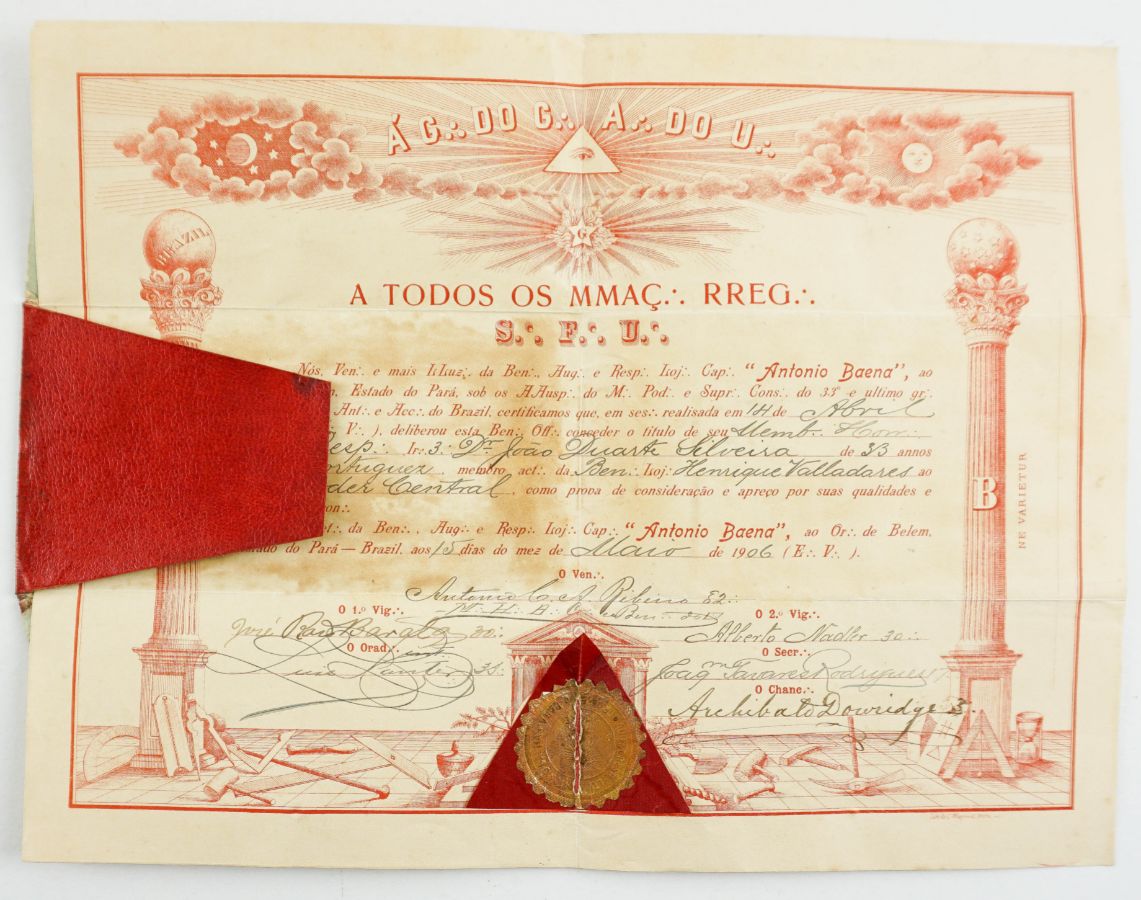 Á G.·. DO G.·. A.·. DO U.·.
BRAZIL
G
A TODOS OS MMAÇ.·. RREG.·.
S.·. F.·. U.·.
Nós, Ven.·. e mais LLuz.·. da Ben.·., Aug.·. e Resp.·. Loj.·. Cap.·. "Antonio Baena", ao
Estado do Pará, sob os AAusp.·. do M.·. Pod.·. e Supr.·. Cons.·. do 33º e ultimo gr.·.
Ant.·. e Acc.·. do Brazil, certificamos que, em ses.·. realisada em 14 de Abril
V.·. ), deliberou esta Ben.·. Off.·. conceder o titulo de seu Memb.·. Hon.·.
Resp.·. Ir.·. 3.·. Dr. João Duarte Silveira de 33 annos
membro act.·. da Ben.·. Loj.·. Henrique Valladares ao
der Central, como prova de consideração e apreço por suas qualidades e
on.·.
da Ben.·., Aug.·. e Resp.·. Loj.·. Cap.·. "Antonio Baena", ao Or.·. de Belem,
do Pará — Brazil, aos 15 dias do mez de Maio de 1906 (E.·. V.·. ).
O Ven.·.
Antonio C. A. Ribeiro
O 1.º Vig.·.
O 2.º Vig.·.
José Barata 30.·.
Alberto Nadler 30.·.
O Orad.·.
O Secr.·.
Joaqm Tavares Rodrigues
O Chanc.·.
Archibald Dowridge 3.·.
B
NE VARIETUR